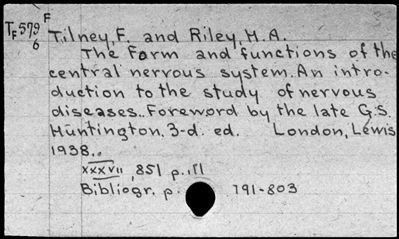 F
TF 579
6
Tilney, F. and Riley, H.A.
The form and functions of the
central nervous system. An intro-
duction to the study of nervous
diseases.. Foreword by the late G.S.
Huntington. 3-d. ed. London, Lewis
1938..
xxxvii, 851 p., ill
Bibliogr. p. 791-803